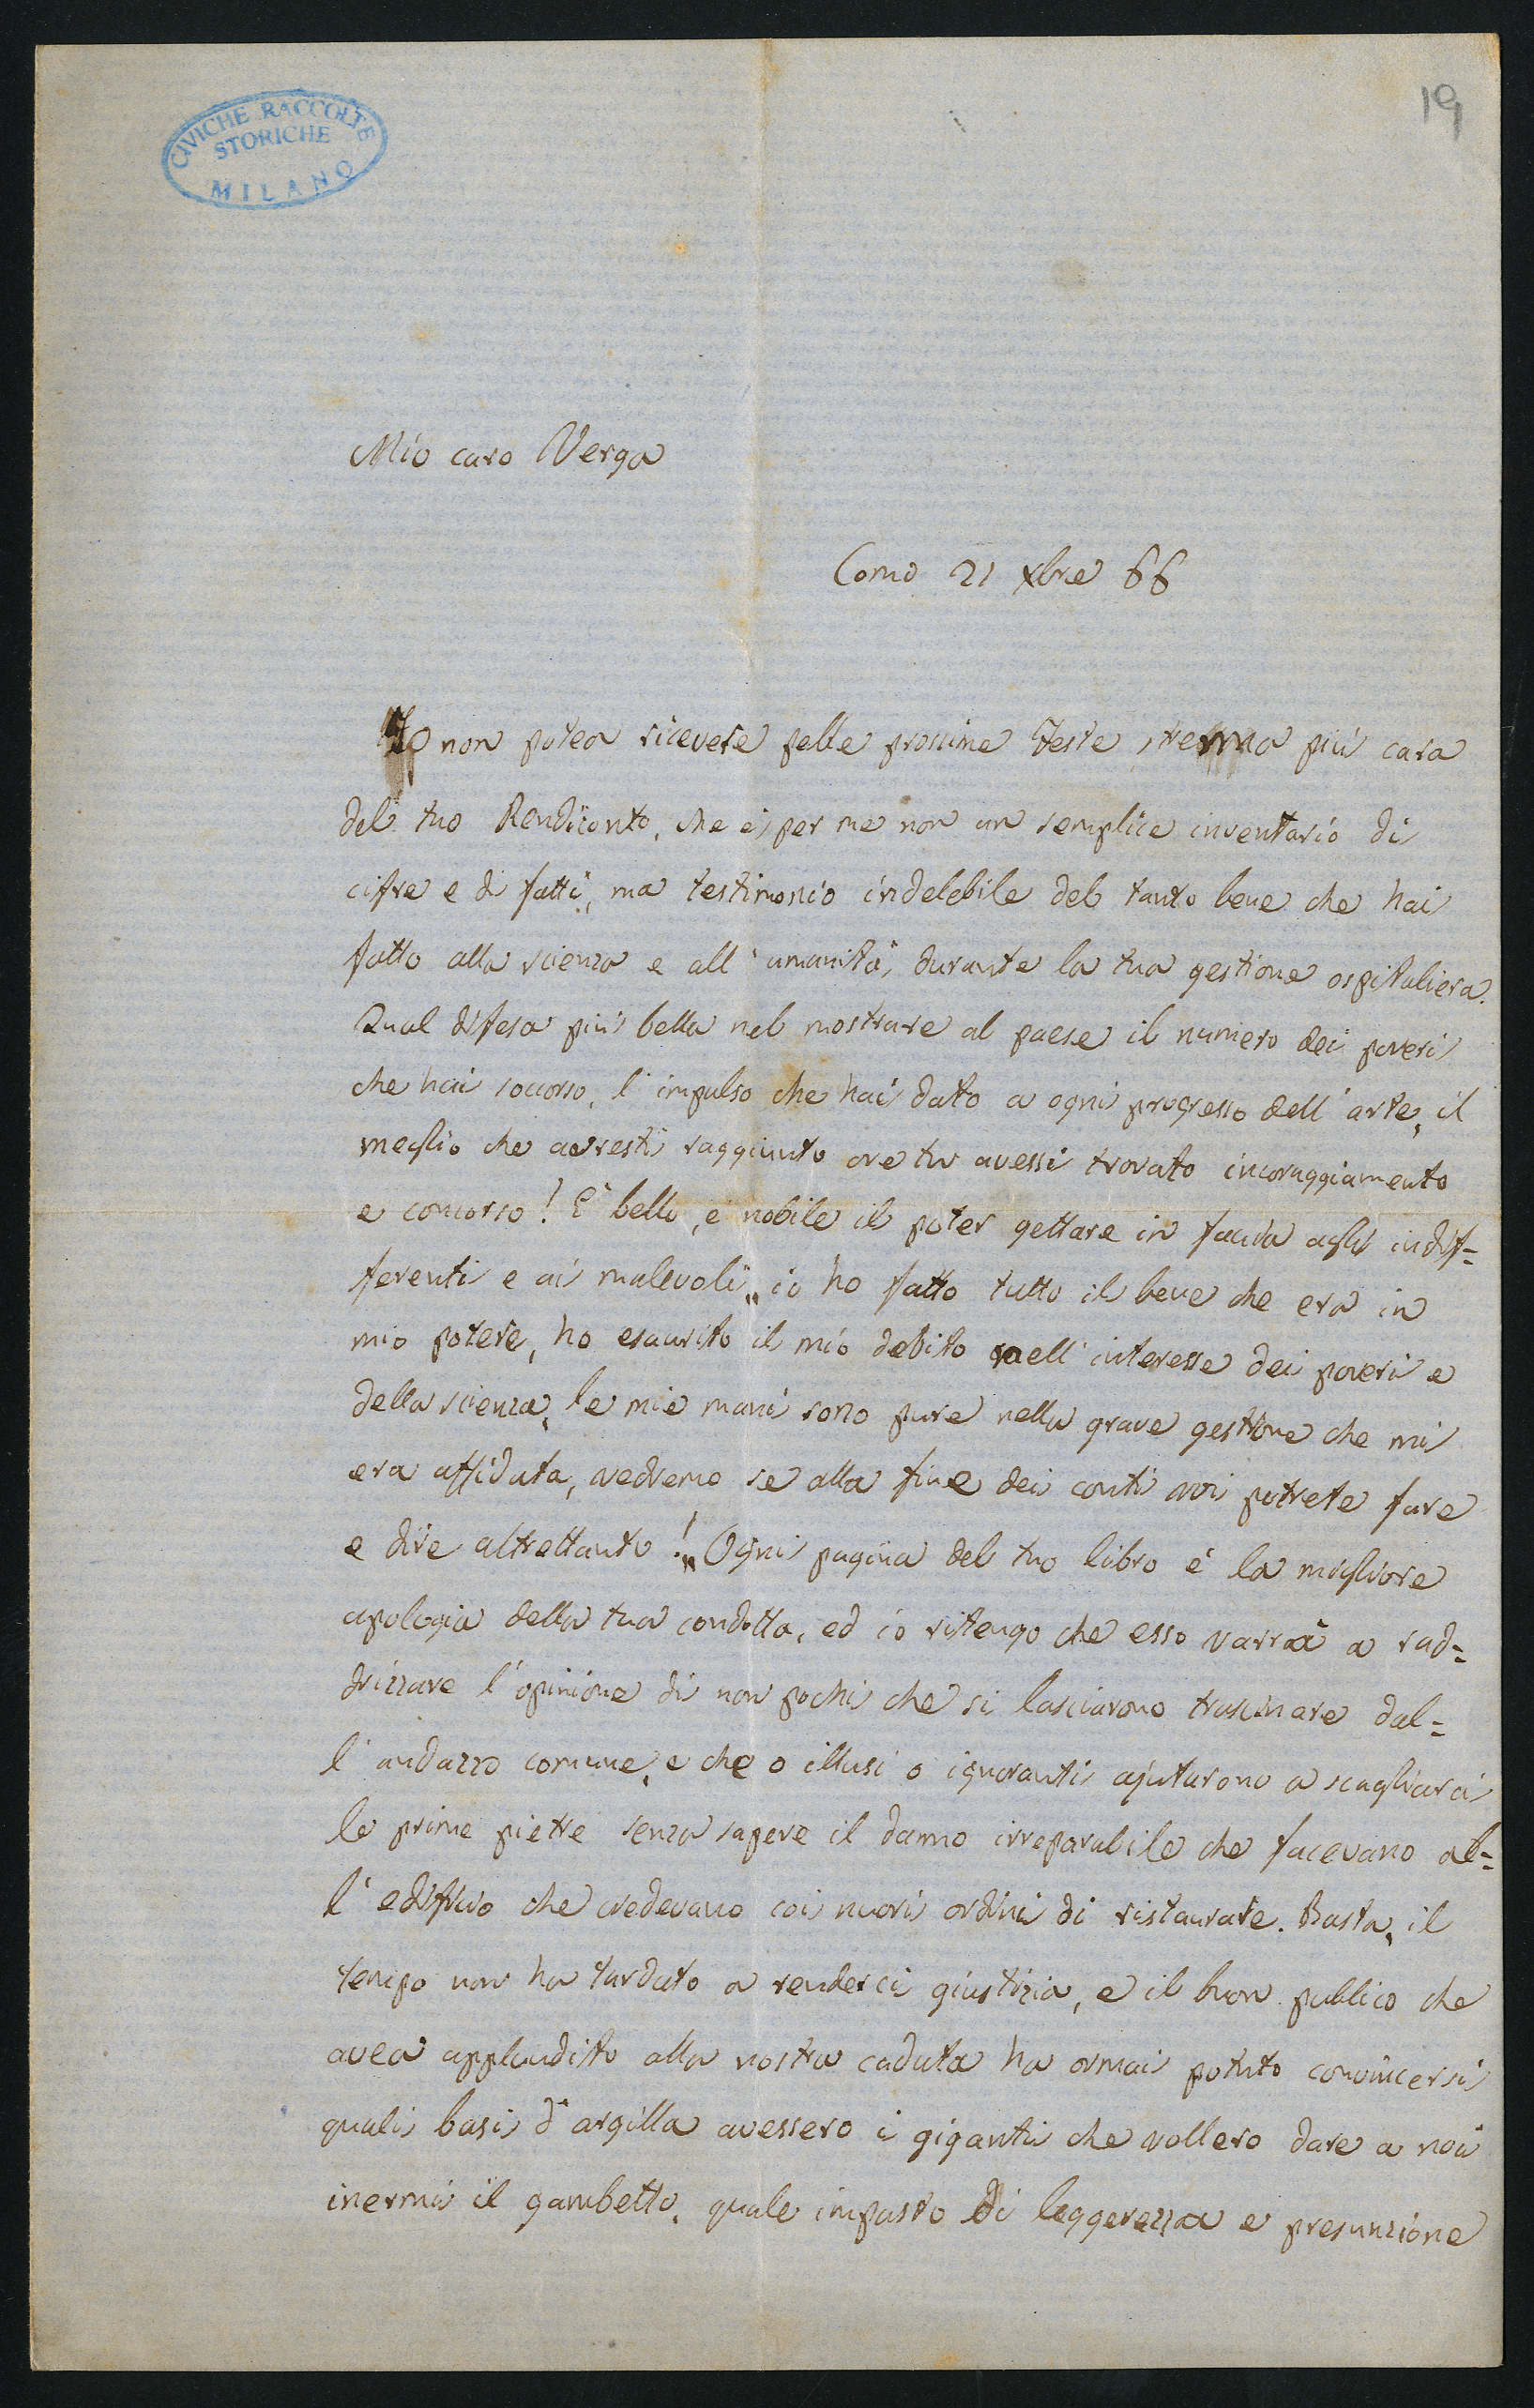 CIVICHE RACCOLTE
STORICHE
MILANO
19
Mio caro Verga
Como 21 Xbre 66
Io non potea ricevere pelle prossime Feste strenna più cara
del tuo Rendiconto, che è per me non un semplice inventario di
cifre e di fatti, ma testimonio indelebile del tanto bene che hai
fatto alla scienza e all'umanità, durante la tua gestione ospitaliera.
Qual difesa più bella nel mostrare al paese il numero dei poveri
che hai soccorso, l'impulso che hai dato a ogni progresso dell'arte, il
meglio che avresti raggiunto ove tu avessi trovato incoraggiamento
e concorso! È bello, è nobile il poter gettare in faccia agli indif=
ferenti e ai malevoli „ io ho fatto tutto il bene che era in
mio potere, ho esaurito il mio debito nell'interesse dei poveri e
della scienza, le mie mani sono pure nella grave gestione che mi
era affidata, vedremo se alla fine dei conti voi potrete fare
e dire altrettanto!„ Ogni pagina del tuo libro è la migliore
apologia della tua condotta, ed io ritengo che esso varrà a rad=
drizzare l'opinione di non pochi che si lasciarono trascinare dal=
l'andazzo comune, e che o illusi o ignoranti ajutarono a scagliarci
le prime pietre senza sapere il danno irreparabile che facevano al=
l'edificio che credevano coi nuovi ordini di ristaurare. Basta, il
tempo non ha tardato a renderci giustizia, e il buon publico che
avea applaudito alla nostra caduta ha ormai potuto convincersi
quali basi d'argilla avessero i giganti che vollero dare a noi
inermi il gambetto, quale impasto di leggerezza e presunzione